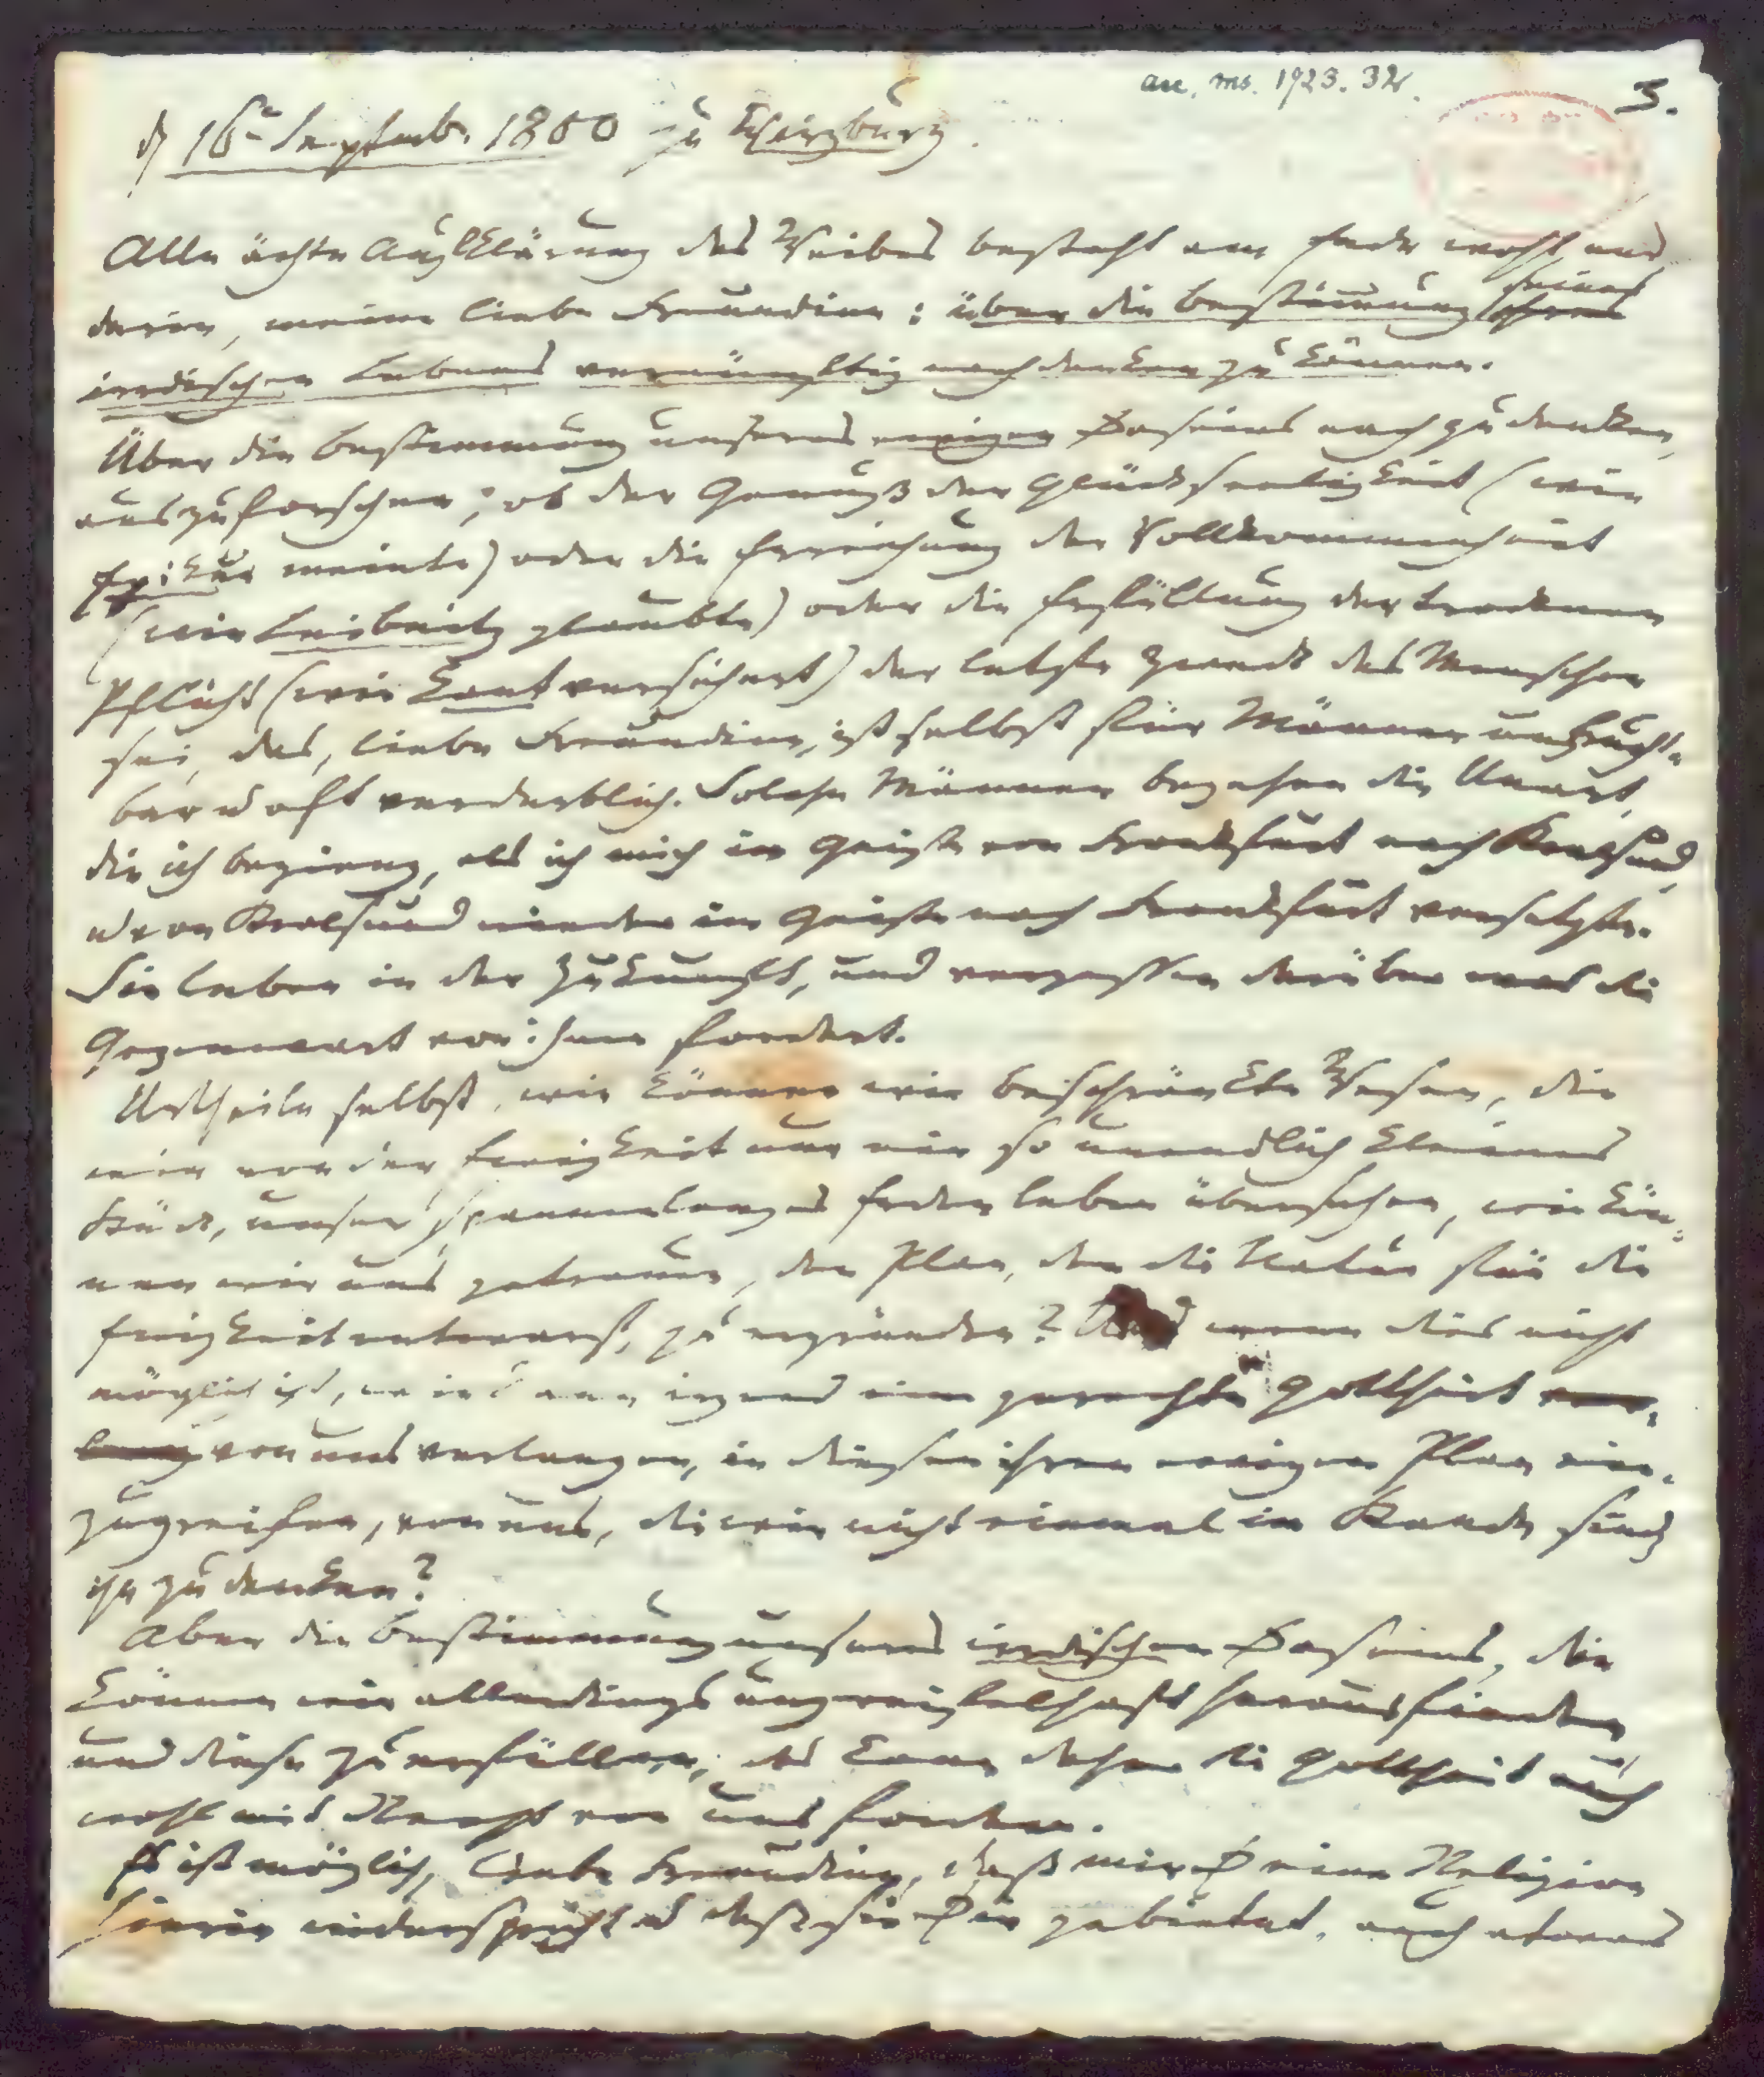 acc. ms. 1923. 32.
3.
d 16t Septemb. 1800 zu Würzburg.
Alle ächte Aufklärung des Weibes besteht am Ende wohl nur
darin, meine liebe Freundinn: über die Bestimmung seines ihres
irrdischen Lebens vernünftig nachdenken zu können.
Über die Bestimmung unseres ewigen Daseins nachzudenken,
auszuforschen, ob der Genuß der Glückseeligkeit (wie
Epikur meinte) oder die Erreichung der Vollkommenheit
(wie Leibnitz glaubte) oder die Erfüllung der trocknen
Pflicht (wie Kant versichert) der letzte Zweck des Menschen
sei, das, liebe Freundinn, ist selbst für Männer unfrucht-
bar u oft verderblich. Solche Männer begehen die Unart,
die ich beging, als ich mich im Geiste von Frankfurt nach Stralsund,
u von Stralsund wieder im Geiste nach Frankfurt versetzte.
Sie leben in der Zukunft, und vergessen darüber was die
Gegenwart von ihnen fordert.
Urtheile selbst, wie können wir beschränkte Wesen, die
wir von der Ewigkeit nur ein so unendlich kleines
Stück, unser spannenlanges Erdenleben übersehen, wie kön-
nen wir uns getrauen, den Plan, den die Natur für die
Ewigkeit entwarf, zu ergründen? Und wenn dies nicht
möglich ist, wie kann irgend eine gerechte Gottheit ver-
lang von uns verlangen, in diesen ihren ewigen Plan ein-
zugreifen, von uns, die wir nicht einmal im Stande sind
ihn zu denken?
Aber die Bestimmung unseres irrdischen Daseins, die
können wir allerdings unzweifelhaft herausfinden,
und diese zu erfüllen, das kann daher die Gottheit auch
wohl mit Recht von uns fordern.
Es ist möglich, liebe Freundinn, daß mir Deine Religion
hierin widerspricht u daß sie Dir gebietet, auch etwas